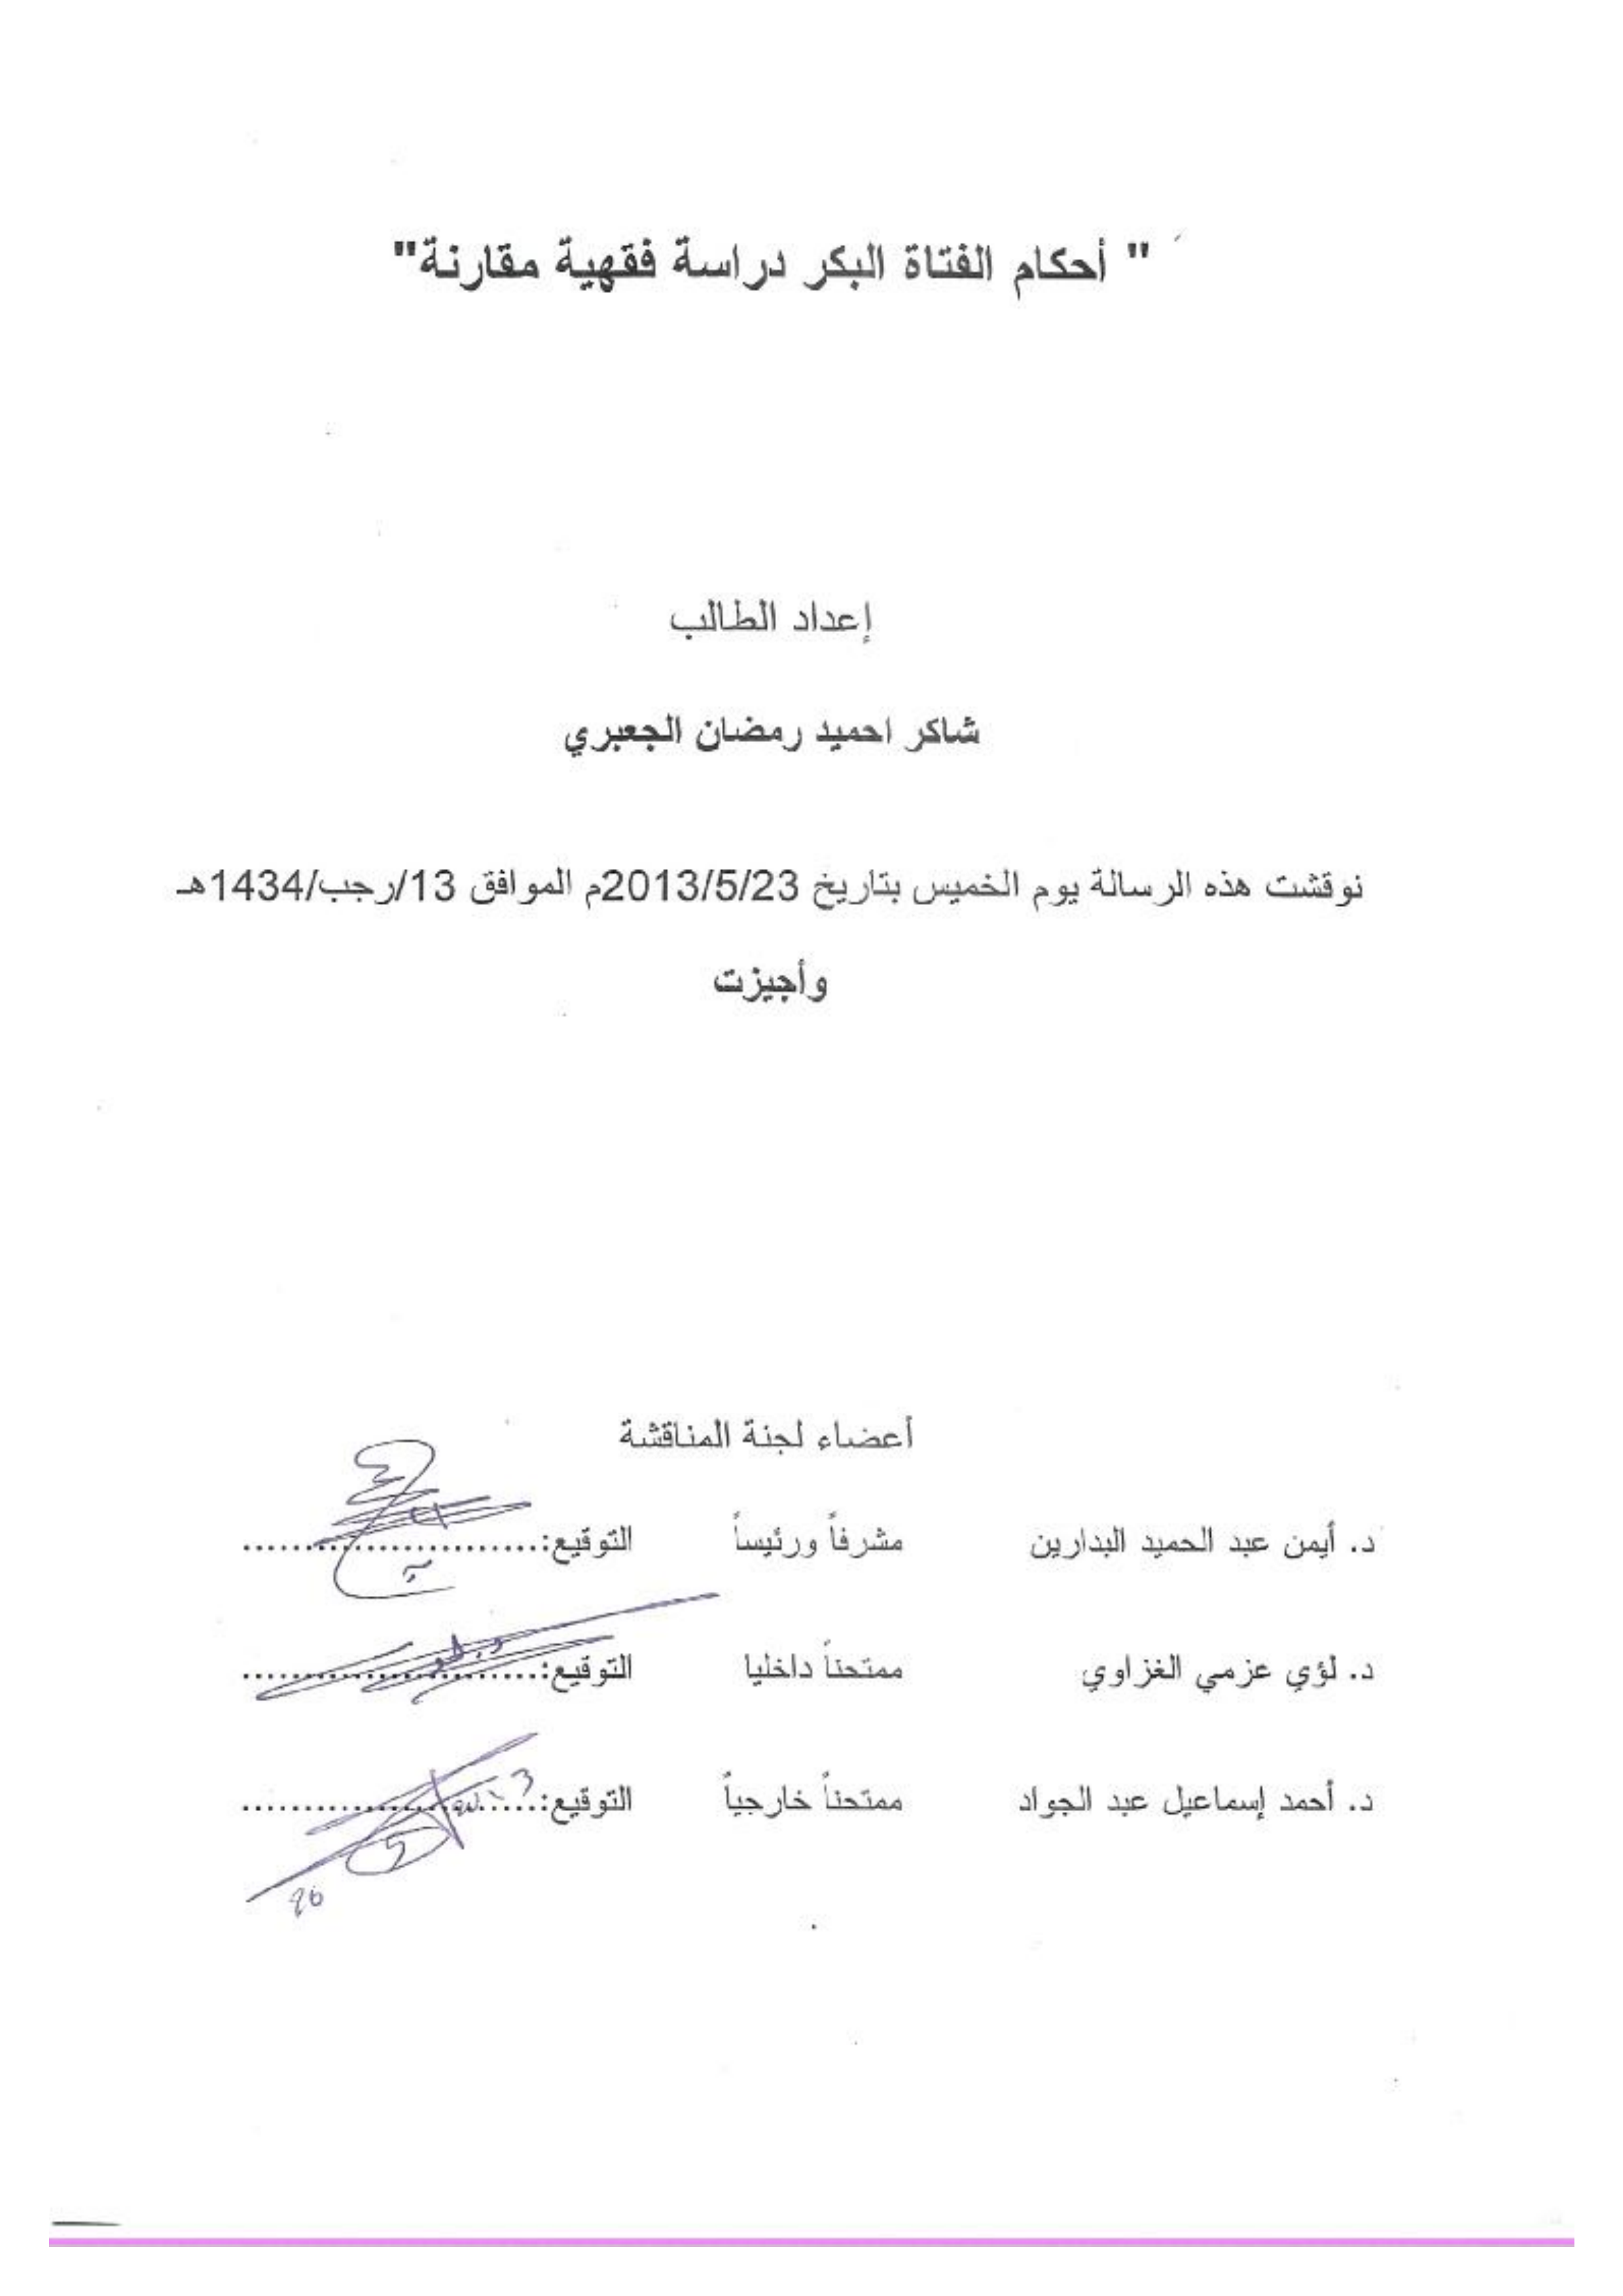 " أحكام الفتاة البكر دراسة فقهية مقارنة"
إعداد الطالب
شاكر احميد رمضان الجعبري
نوقشت هذه الرسالة يوم الخميس بتاريخ 2013/5/23م الموافق 13/رجب/1434هـ
وأجيزت
أعضاء لجنة المناقشة
د. أيمن عبد الحميد البدارين مشرفاً ورئيساً التوقيع:........................
د. لؤي عزمي الغزاوي ممتحناً داخليا التوقيع:........................
د. أحمد إسماعيل عبد الجواد ممتحناً خارجياً التوقيع:........................